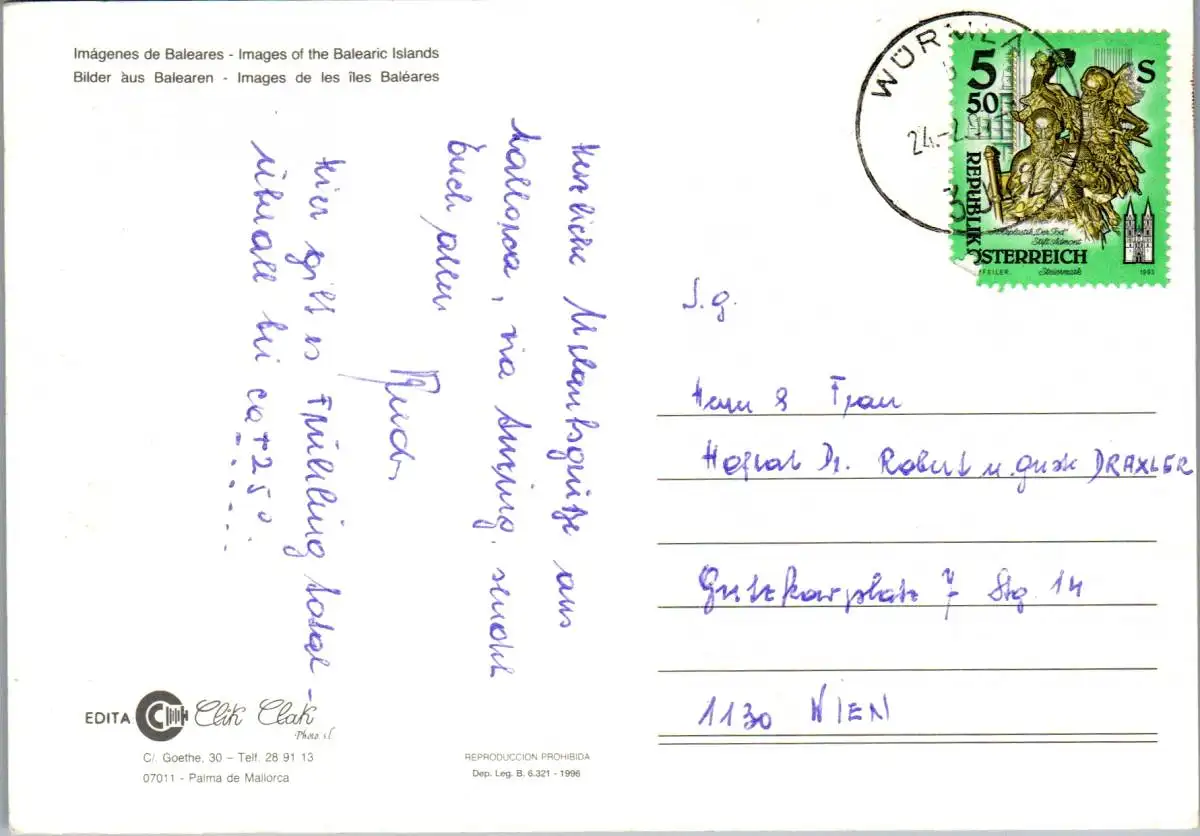 Imágenes de Baleares - Images of the Balearic Islands
Bilder aus Balearen - Images de les îles Baléares
Herzliche Urlaubsgrüße aus
Mallorca, via sendet
Euch allen
Hier gilt es Frühling total -
überall bei ca +25°
EDITA Clik Clak
Photo, s.l.
C/. Goethe, 30 – Telf. 28 91 13
07011 - Palma de Mallorca
REPRODUCCION PROHIBIDA
Dep. Leg. B. 6.321 - 1996
24.-2.
5 50 S
REPUBLIK
ÖSTERREICH
"Der Tod"
Stift Admont
Steiermark
1993
S.g.
Herrn & Frau
Hofrat Dr. Robert u. DRAXLER
Gutzkowplatz 7 Stg 14
1130 WIEN